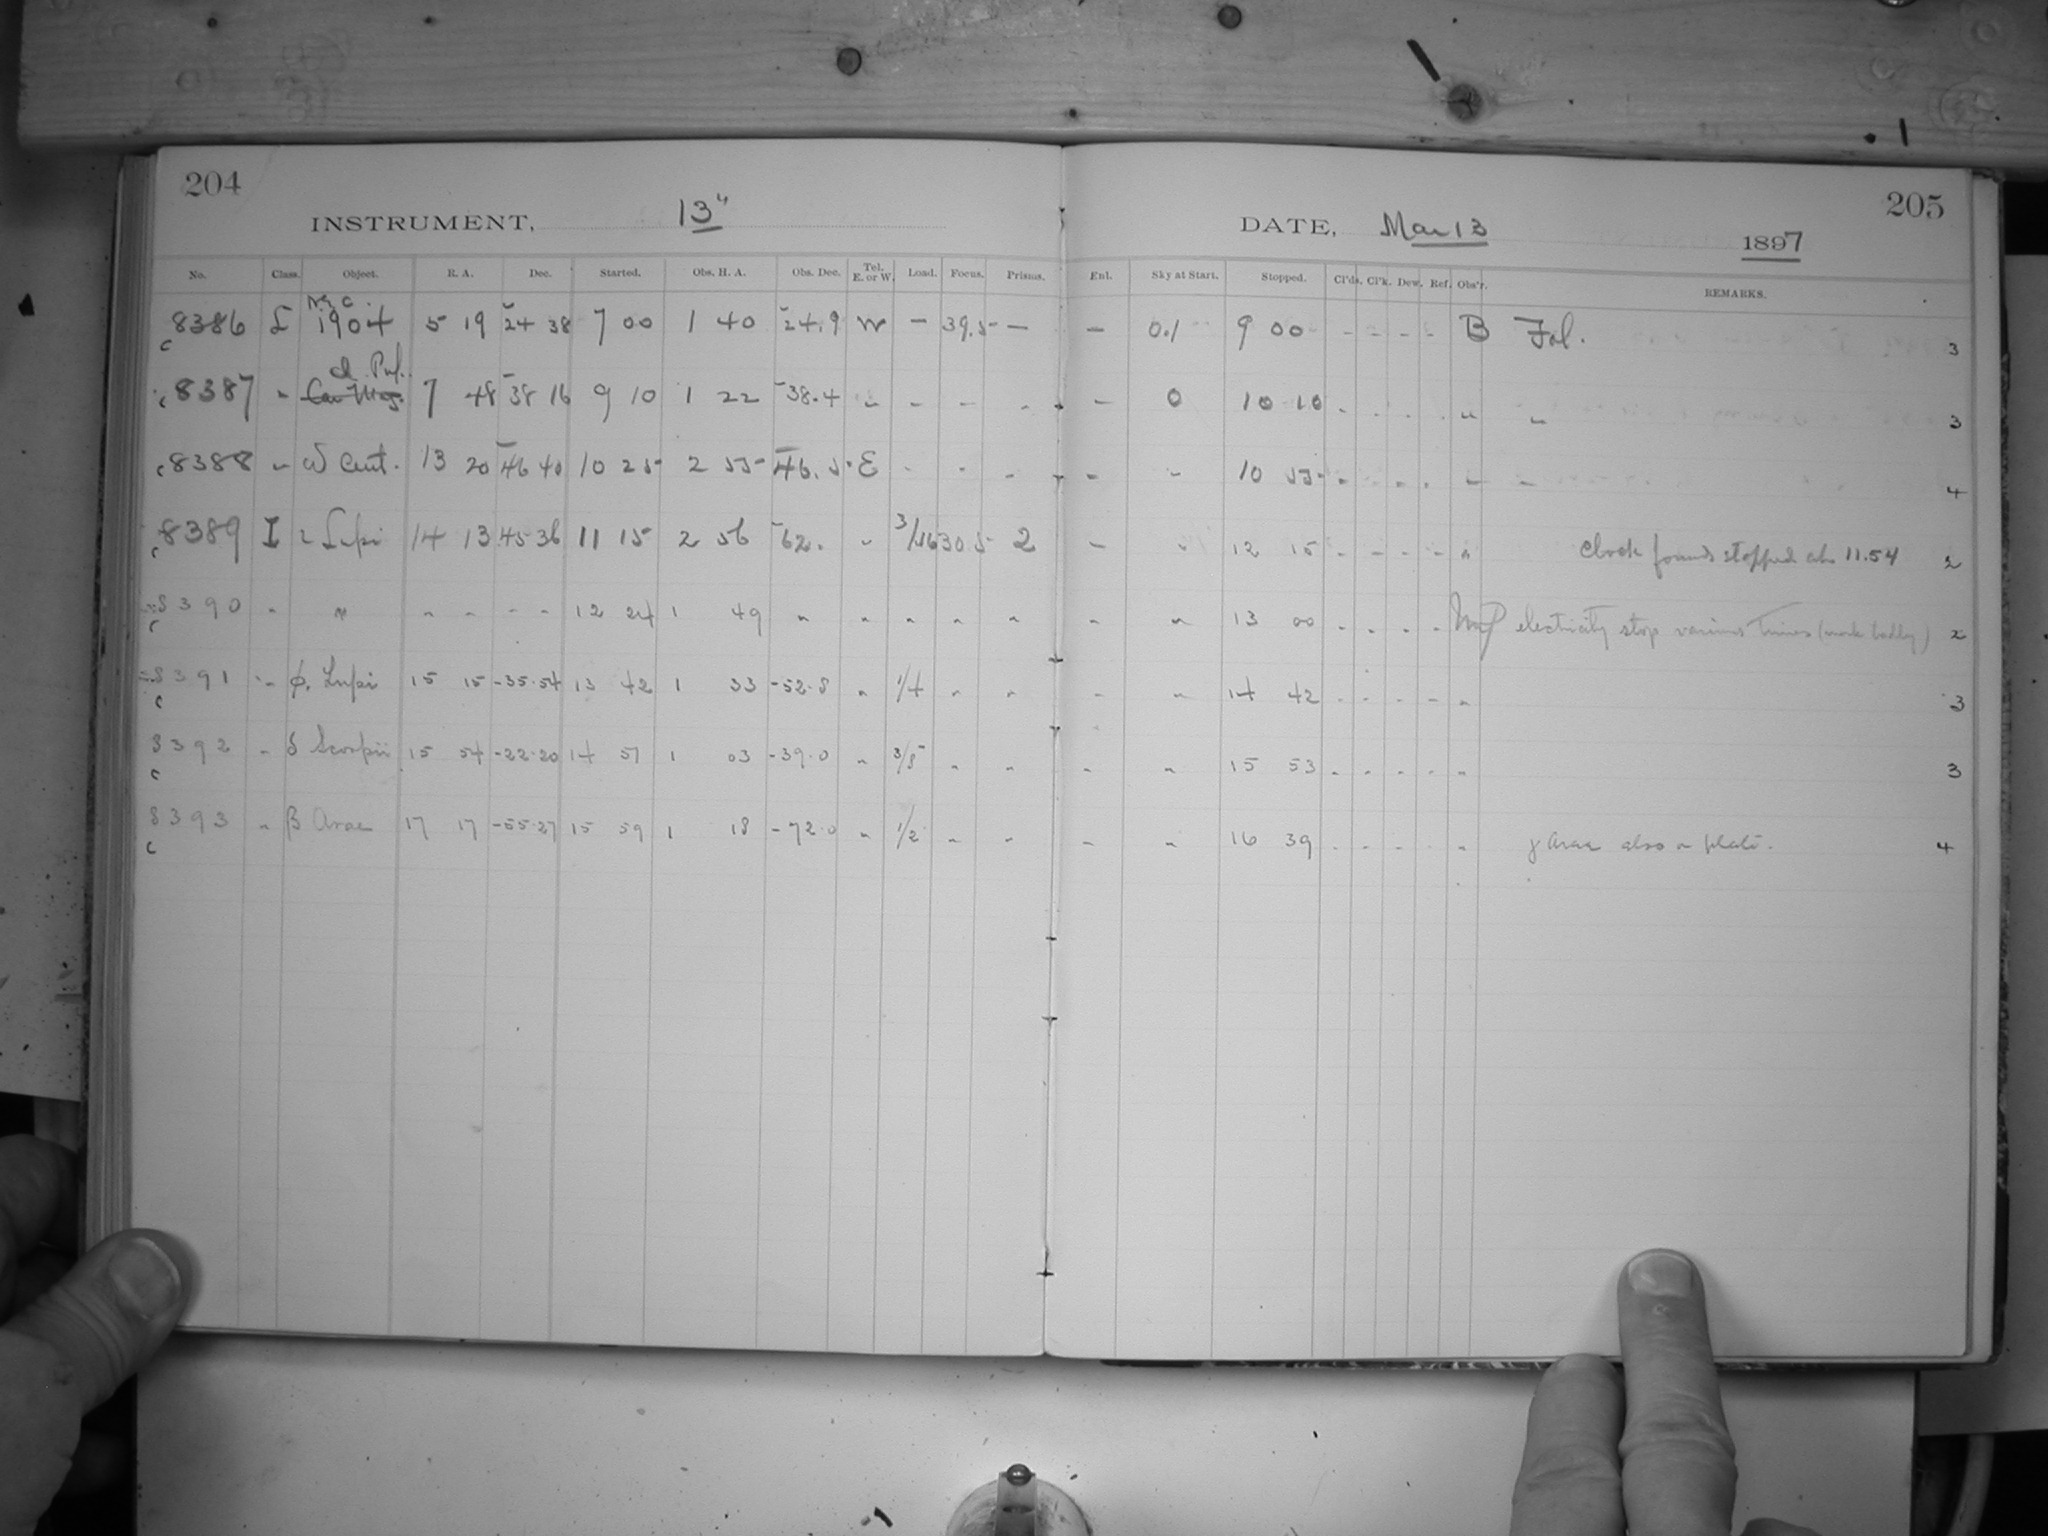 204
INSTRUMENT, 13"
No. Class. Object. R. A. Dec. Started. Obs. H. A. Obs. Dec. Tel. E. or W. Load. Focus. Prisms.
N.G.C.
8386 L 1904 5 19 -24 38 7 00 1 40 -24.9 W - 39.5 -
d Pup.
8387 " 7 48 -38 16 9 10 1 22 -38.4 " - - -
8388 " ω Cent. 13 20 -46 40 10 25 2 55 -46.5 E - - -
8389 I Lupi 14 13 45 36 11 15 2 56 -62. " 3/16 30.5 2
8390 " " " " - - 12 24 1 49 " " " " "
8391 " φ. Lupi 15 15 -35.54 13 42 1 33 -52.8 " 1/4 " "
8392 " δ Scorpii 15 54 -22.20 14 51 1 03 -39.0 " 3/8 " "
8393 " β Arae 17 17 -55.27 15 59 1 18 -72.0 " 1/2 " "
205
DATE, Mar 13 1897
Enl. Sky at Start. Stopped. Cl'ds. Cl'k. Dew. Ref. Obs'r. REMARKS.
- 0.1 9 00 - - - - B Fol. 3
- 0 10 10 - - - - " " 3
- " 10 55 - - - - " " 4
- " 12 15 - - - - " Clock found stopped at 11.54 2
" " 13 00 - - - - electricity stop various times (work badly) 2
- " 14 42 - - - - " 3
" " 15 53 - - - - " 3
" " 16 39 - - - - " γ Arae also on plate. 4